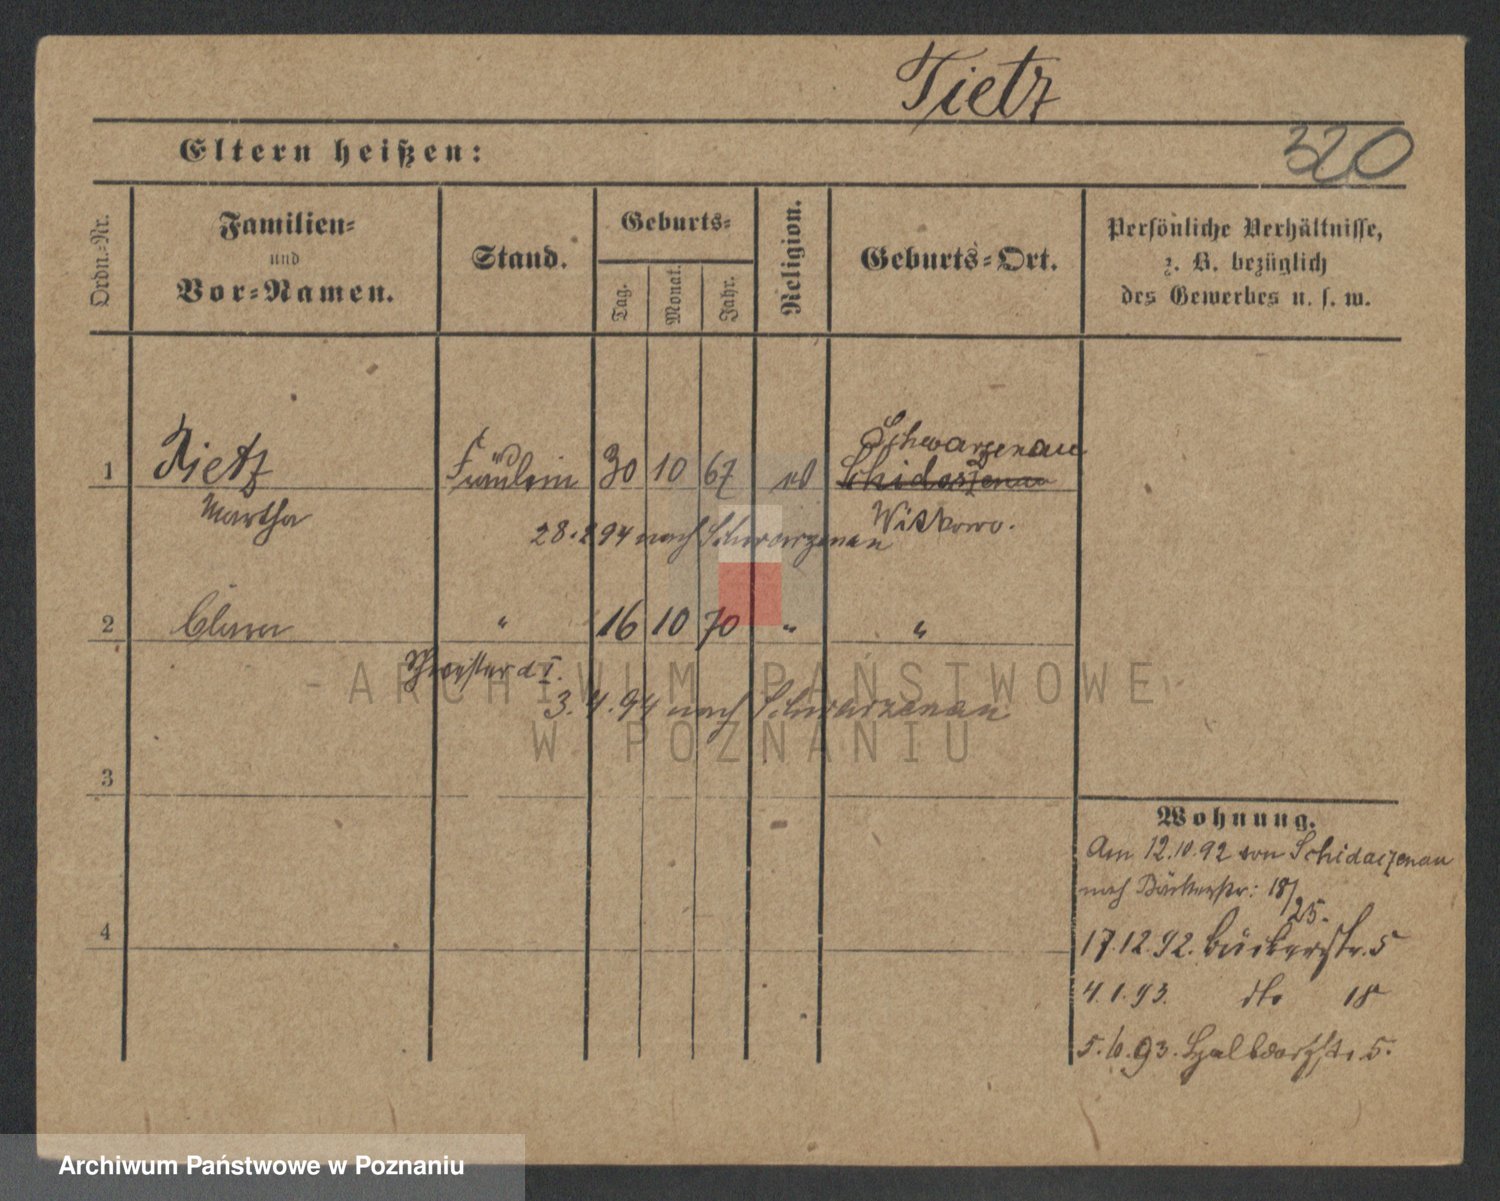 Tietz
320
Eltern heißen:
Ordn.-Nr.
Familien-
und
Vor-Namen.
Stand.
Geburts-
Tag.
Monat.
Jahr.
Religion.
Geburts-Ort.
Persönliche Verhältnisse,
z. B. bezüglich
des Gewerbes u. s. w.
Schwarzenau
1 Tietz Fräulein 30 10 67 ev Schidaszenau
Martha Witkowo.
28. 2 94 nach Schwarzenau
2 Clara " 16 10 70 " "
Schwester d I.
3. 4. 94 nach Schwarzenau
3
4
Wohnung.
Am 12.10.92 von Schidaszenau
nach Bäckerstr: 18/25.
17.12.92. Bäckerstr. 5
4.1.93. dto 18
5.6.93. Halbdorfstr. 5.
- ARCHIWUM PAŃSTWOWE
W POZNANIU
Archiwum Państwowe w Poznaniu